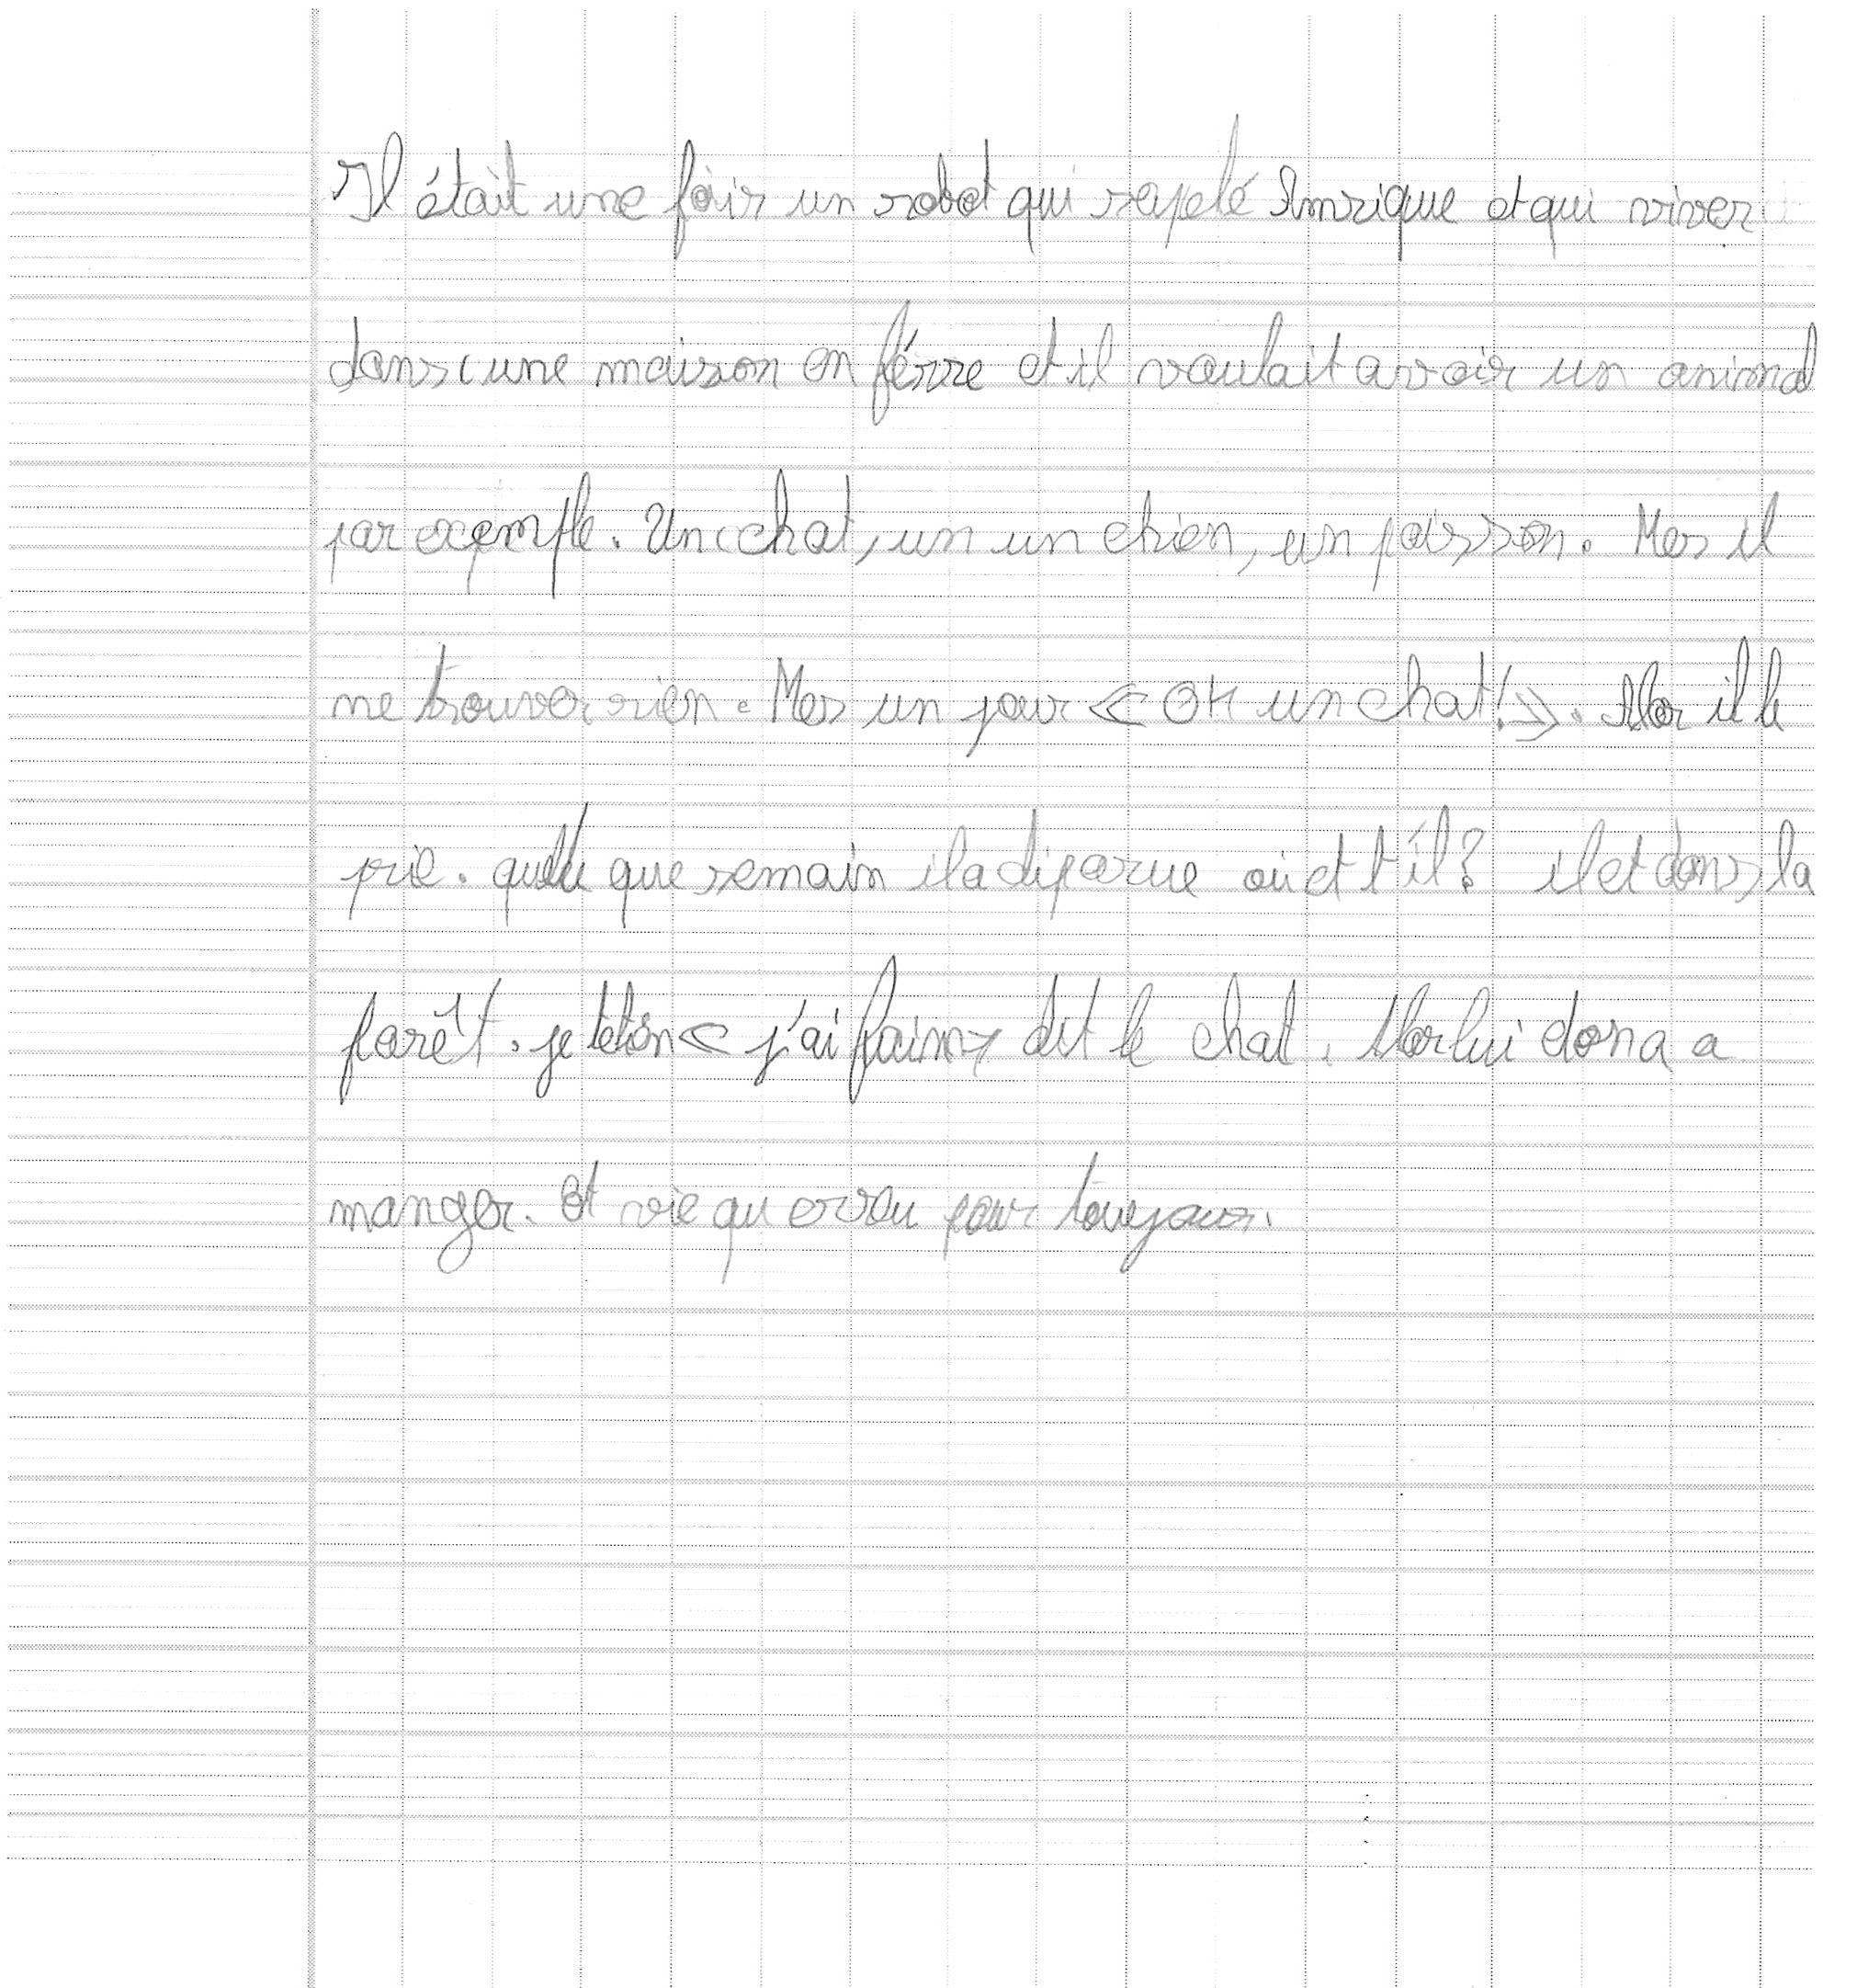 Il était une foir un robot qui sapelé Amrique et qui viver
dans une maison en férre et il voulait avoir un animal
par exemple. Un chat, un un chien, un poisson. Mes il
ne trouver rien. Mes un jour « OH un chat! ». Alor il le
prie. que que semain il a diparue où et t'il? il et dans la
forêt. je tétén « j'ai faim » dit le chat. Alor lui dona a
manger. Et vie qu ereu pour toujour.